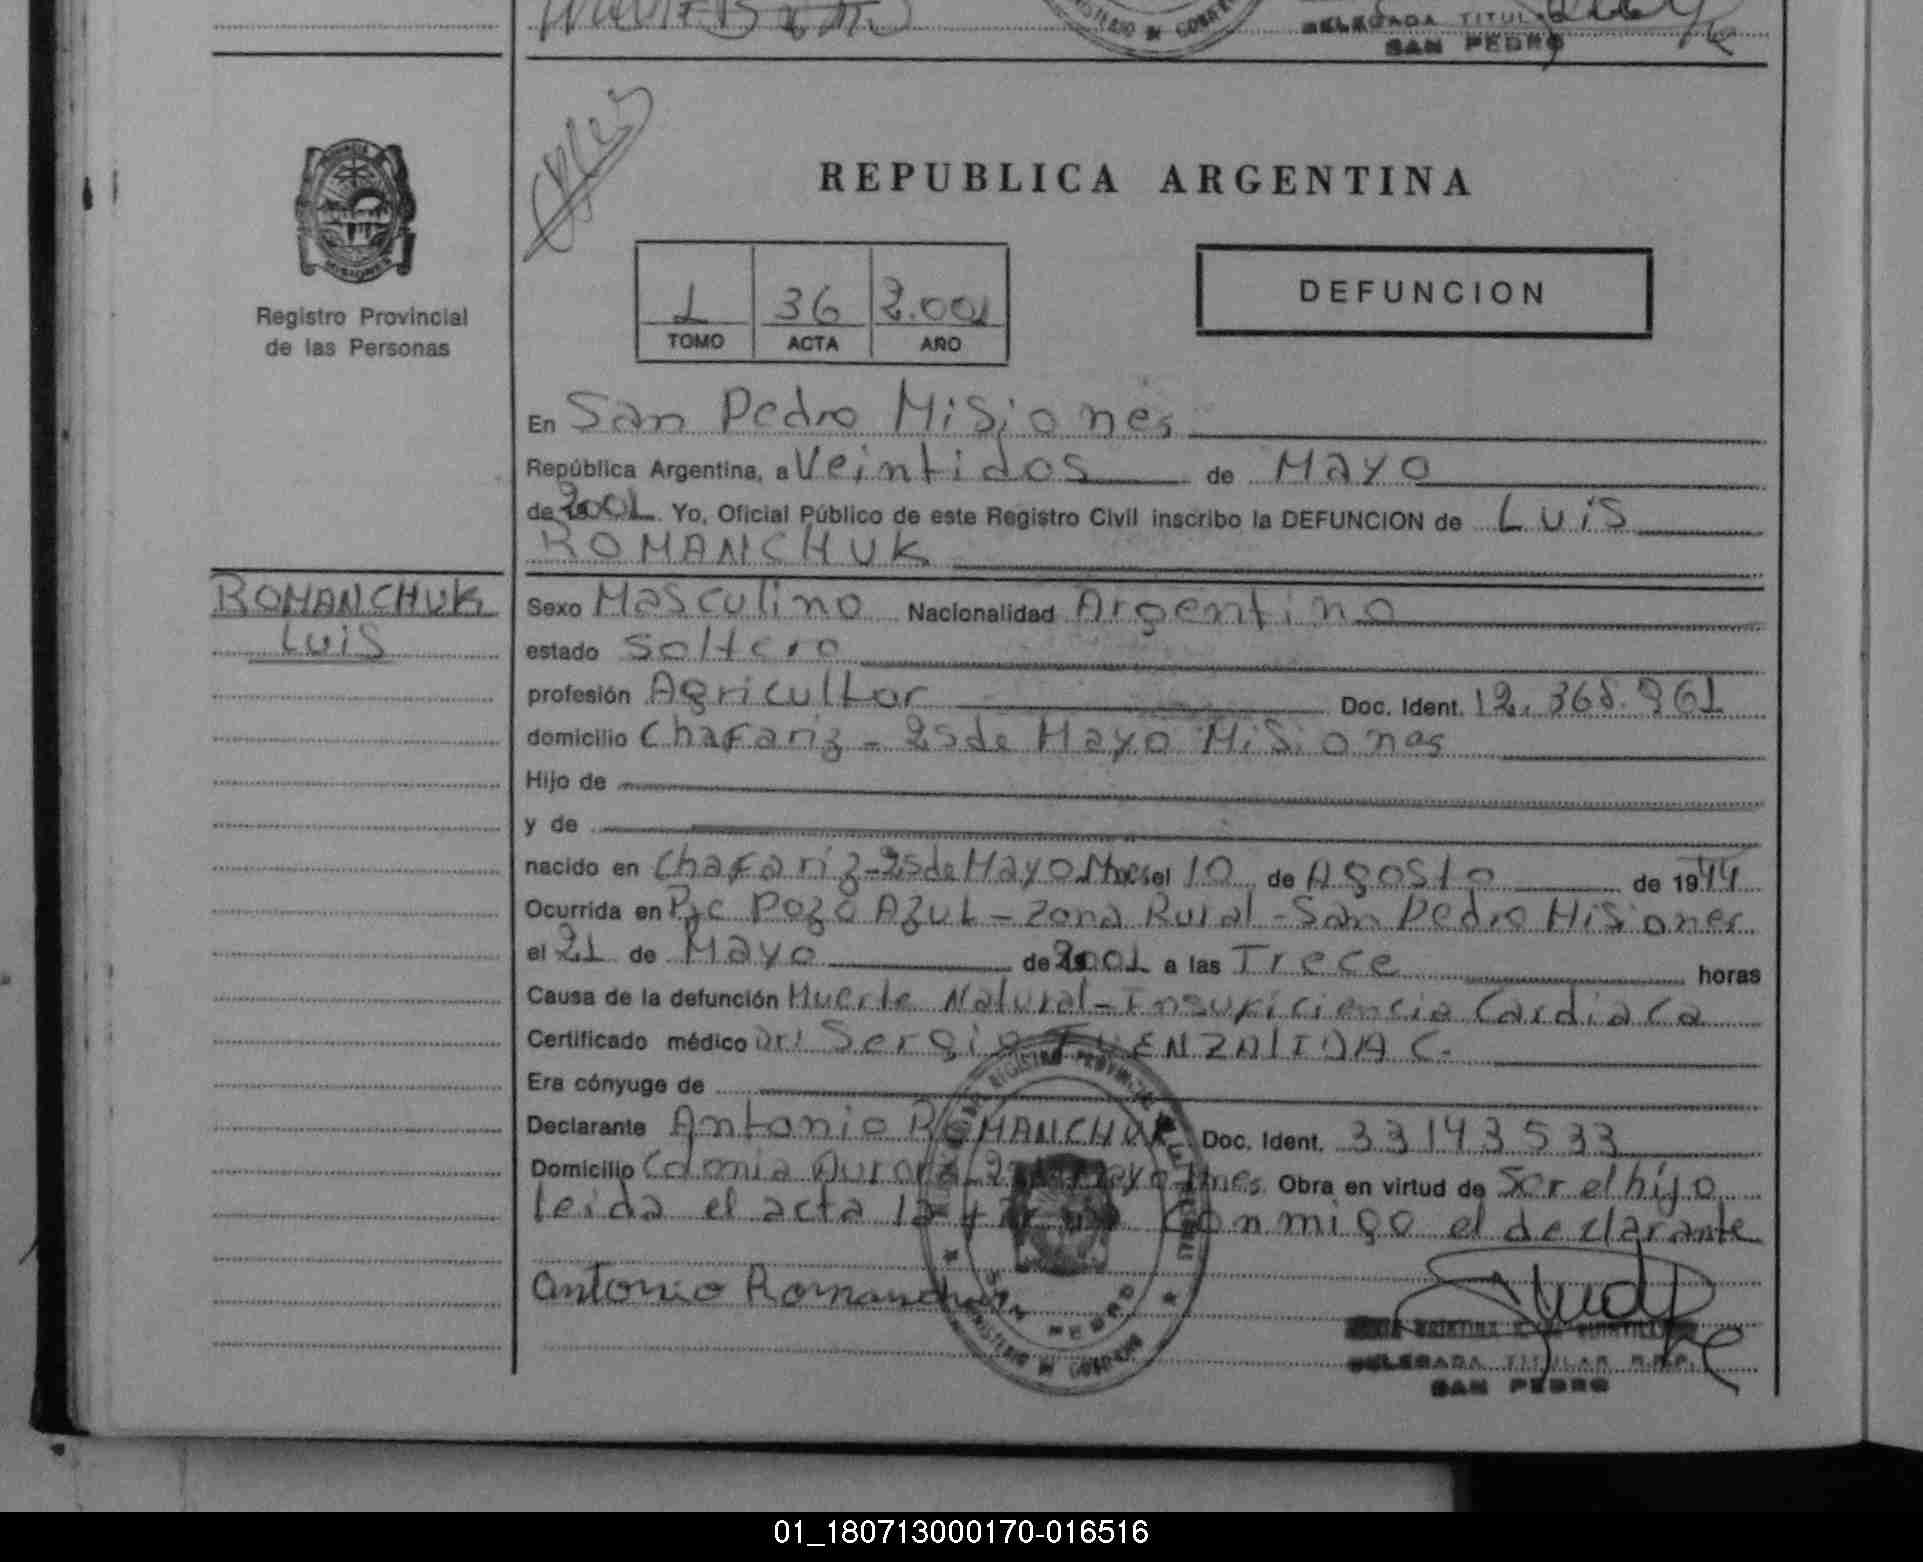 DELEGADA TITULAR
SAN PEDRO
REPUBLICA ARGENTINA
PROVINCIA DE
MISIONES
Registro Provincial
de las Personas
1 36 2.001
TOMO ACTA AÑO
DEFUNCION
En San Pedro Misiones
República Argentina, a Veintidos de Mayo
de 2001 Yo, Oficial Público de este Registro Civil inscribo la DEFUNCION de Luis
ROMANCHUK
ROMANCHUK
Luis
Sexo Masculino Nacionalidad Argentino
estado Soltero
profesión Agricultor Doc. Ident. 12.368.961
domicilio Chafariz - 25 de Mayo Misiones
Hijo de
y de
nacido en Chafariz - 25 de Mayo Mnes el 10 de Agosto de 1944
Ocurrida en Pje Pozo Azul - Zona Rural - San Pedro Misiones
el 21 de Mayo de 2001 a las Trece horas
Causa de la defunción Muerte Natural - Insuficiencia Cardiaca
Certificado médico Dr: Sergio FUENZALIDA C.
Era cónyuge de
Declarante Antonio ROMANCHUK Doc. Ident. 33143533
Domicilio Colonia Aurora 25 de Mayo Mnes. Obra en virtud de Ser el hijo
leida el acta la conmigo el declarante
Antonio Romanchuk
DELEGADA TITULAR R.P.P.
SAN PEDRO
REGISTRO PROVINCIAL
SAN PEDRO
MINISTERIO DE GOBIERNO
01_180713000170-016516